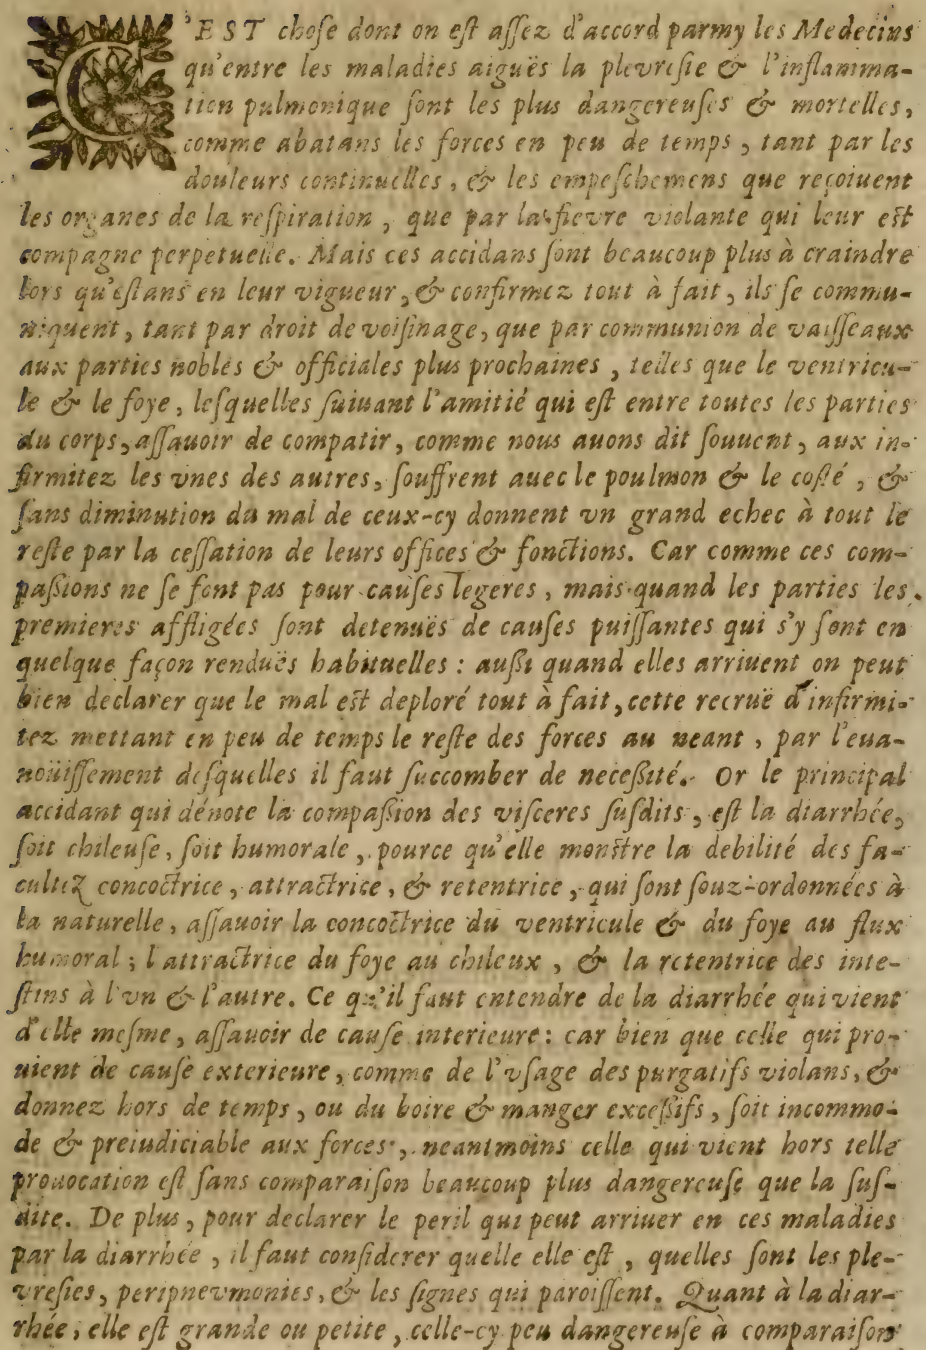 C'EST chose dont on est assez d'accord parmy les Medecins
qu'entre les maladies aiguës la plevresie & l'inflamma-
tion pulmonique sont les plus dangereuses & mortelles,
comme abatans les forces en peu de temps, tant par les
douleurs continuelles, & les empeschemens que reçoiuent
les organes de la respiration, que par la fievre violante qui leur est
compagne perpetuelle. Mais ces accidans sont beaucoup plus à craindre
lors qu'estans en leur vigueur, & confirmez tout à fait, ils se commu-
niquent, tant par droit de voisinage, que par communion de vaisseaux
aux parties nobles & officiales plus prochaines, telles que le ventricu-
le & le foye, lesquelles suiuant l'amitié qui est entre toutes les parties
du corps, assauoir de compatir, comme nous auons dit souuent, aux in-
firmitez les vnes des autres, souffrent auec le poulmon & le costé, &
sans diminution du mal de ceux-cy donnent vn grand echec à tout le
reste par la cessation de leurs offices & fonctions. Car comme ces com-
passions ne se font pas pour causes legeres, mais quand les parties les
premieres affligées sont detenuës de causes puissantes qui s'y sont en
quelque façon renduës habituelles : aussi quand elles arriuent on peut
bien declarer que le mal est deploré tout à fait, cette recruë d'infirmi-
tez mettant en peu de temps le reste des forces au neant, par l'eua-
noüissement desquelles il faut succomber de necessité. Or le principal
accidant qui dénote la compassion des visceres susdits, est la diarrhée,
soit chileuse, soit humorale, pource qu'elle monstre la debilité des fa-
cultez concoctrice, attractrice, & retentrice, qui sont souz-ordonnées à
la naturelle, assauoir la concoctrice du ventricule & du foye au flux
humoral ; l'attractrice du foye au chileux, & la retentrice des inte-
stins à l'vn & l'autre. Ce qu'il faut entendre de la diarrhée qui vient
d'elle mesme, assauoir de cause interieure : car bien que celle qui pro-
uient de cause exterieure, comme de l'vsage des purgatifs violans, &
donnez hors de temps, ou du boire & manger excessifs, soit incommo-
de & preiudiciable aux forces, neantmoins celle qui vient hors telle
prouocation est sans comparaison beaucoup plus dangereuse que la sus-
dite. De plus, pour declarer le peril qui peut arriuer en ces maladies
par la diarrhée, il faut considerer quelle elle est, quelles sont les ple-
vresies, peripnevmonies, & les signes qui paroissent. Quant à la diar-
rhée, elle est grande ou petite, celle-cy peu dangereuse à comparaison